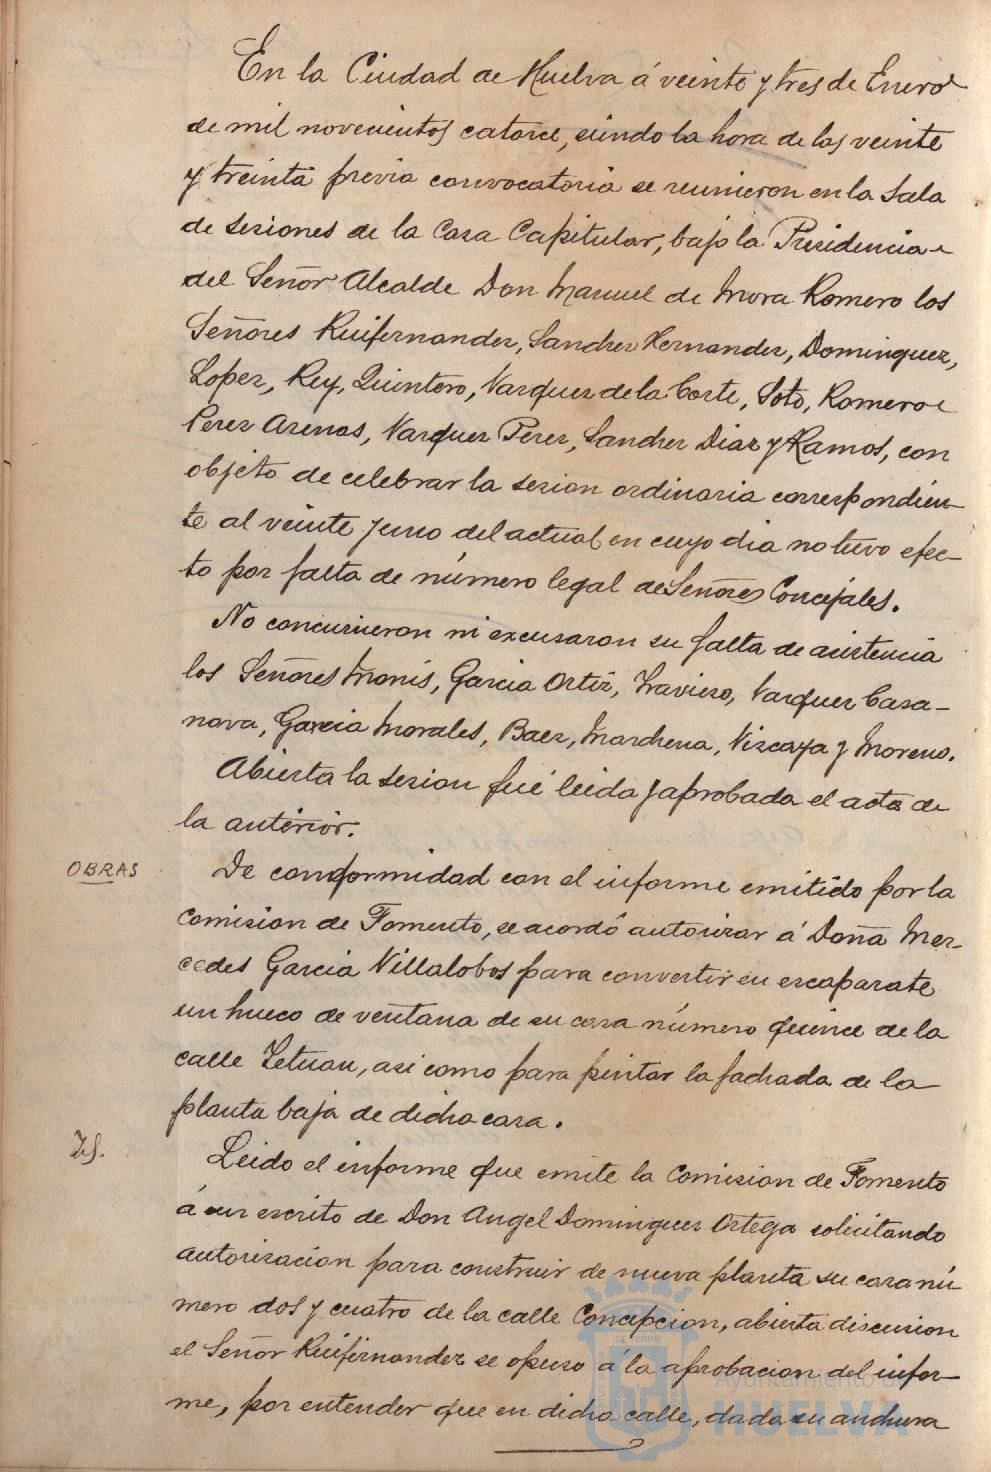 En la Ciudad de Huelva á veinte y tres de Enero
de mil novecientos catorce, siendo la hora de las veinte
y treinta previa convocatoria se reunieron en la Sala
de Sesiones de la Casa Capitular, bajo la Presidencia
del Señor Alcalde Don Manuel de Mora Romero los
Señores Ruifernandez, Sanchez Hernandez, Dominguez,
Lopez, Rey, Quintero, Vazquez de la Corte, Soto, Romero
Perez Arenas, Vazquez Perez, Sanchez Diaz y Ramos, con
objeto de celebrar la sesion ordinaria correspondien-
te al veinte y uno del actual en cuyo dia no tuvo efec-
to por falta de número legal de Señores Concejales.
No concurrieron ni excusaron su falta de asistencia
los Señores Monis, Garcia Ortiz, Traviero, Vazquez Casa-
nova, Garcia Morales, Baez, Marchena, Vizcaya y Moreno.
Abierta la sesion fué leida y aprobada el acta de
la anterior.
OBRAS
De conformidad con el informe emitido por la
Comision de Fomento, se acordó autorizar á Doña Mer-
cedes Garcia Villalobos para convertir en escaparate
un hueco de ventana de su casa número quince de la
calle Tetuan, asi como para pintar la fachada de la
planta baja de dicha casa.
Id.
Leido el informe que emite la Comision de Fomento
á un escrito de Don Angel Dominguez Ortega solicitando
autorizacion para construir de nueva planta su casa nú
mero dos y cuatro de la calle Concepcion, abierta discusion
el Señor Ruifernandez se opuso á la aprobacion del infor-
me, por entender que en dicha calle, dada su anchura
Ayuntamiento de
HUELVA